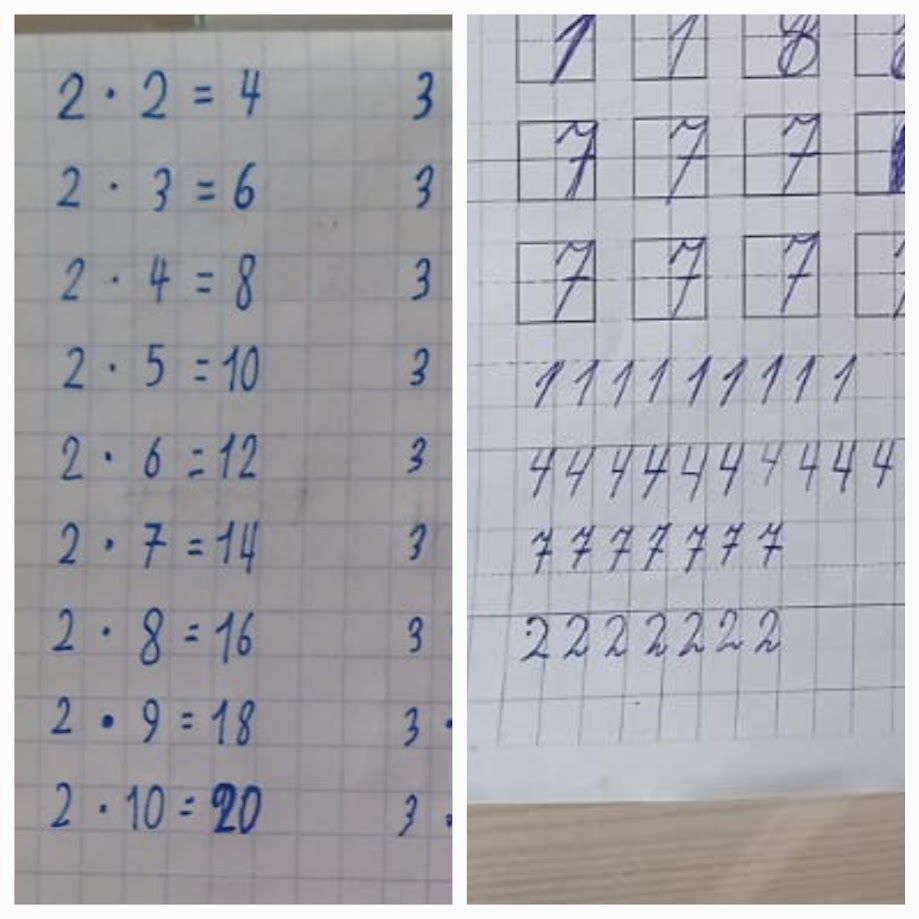 2 · 2 = 4 3
2 · 3 = 6 3
2 · 4 = 8 3
2 · 5 = 10 3
2 · 6 = 12 3
2 · 7 = 14 3
2 · 8 = 16 3
2 · 9 = 18 3 ·
2 · 10 = 20 3 ·
1 1 8
7 7 7
7 7 7
1 1 1 1 1 1 1 1 1
4 4 4 4 4 4 4 4 4 4
7 7 7 7 7 7 7
2 2 2 2 2 2 2